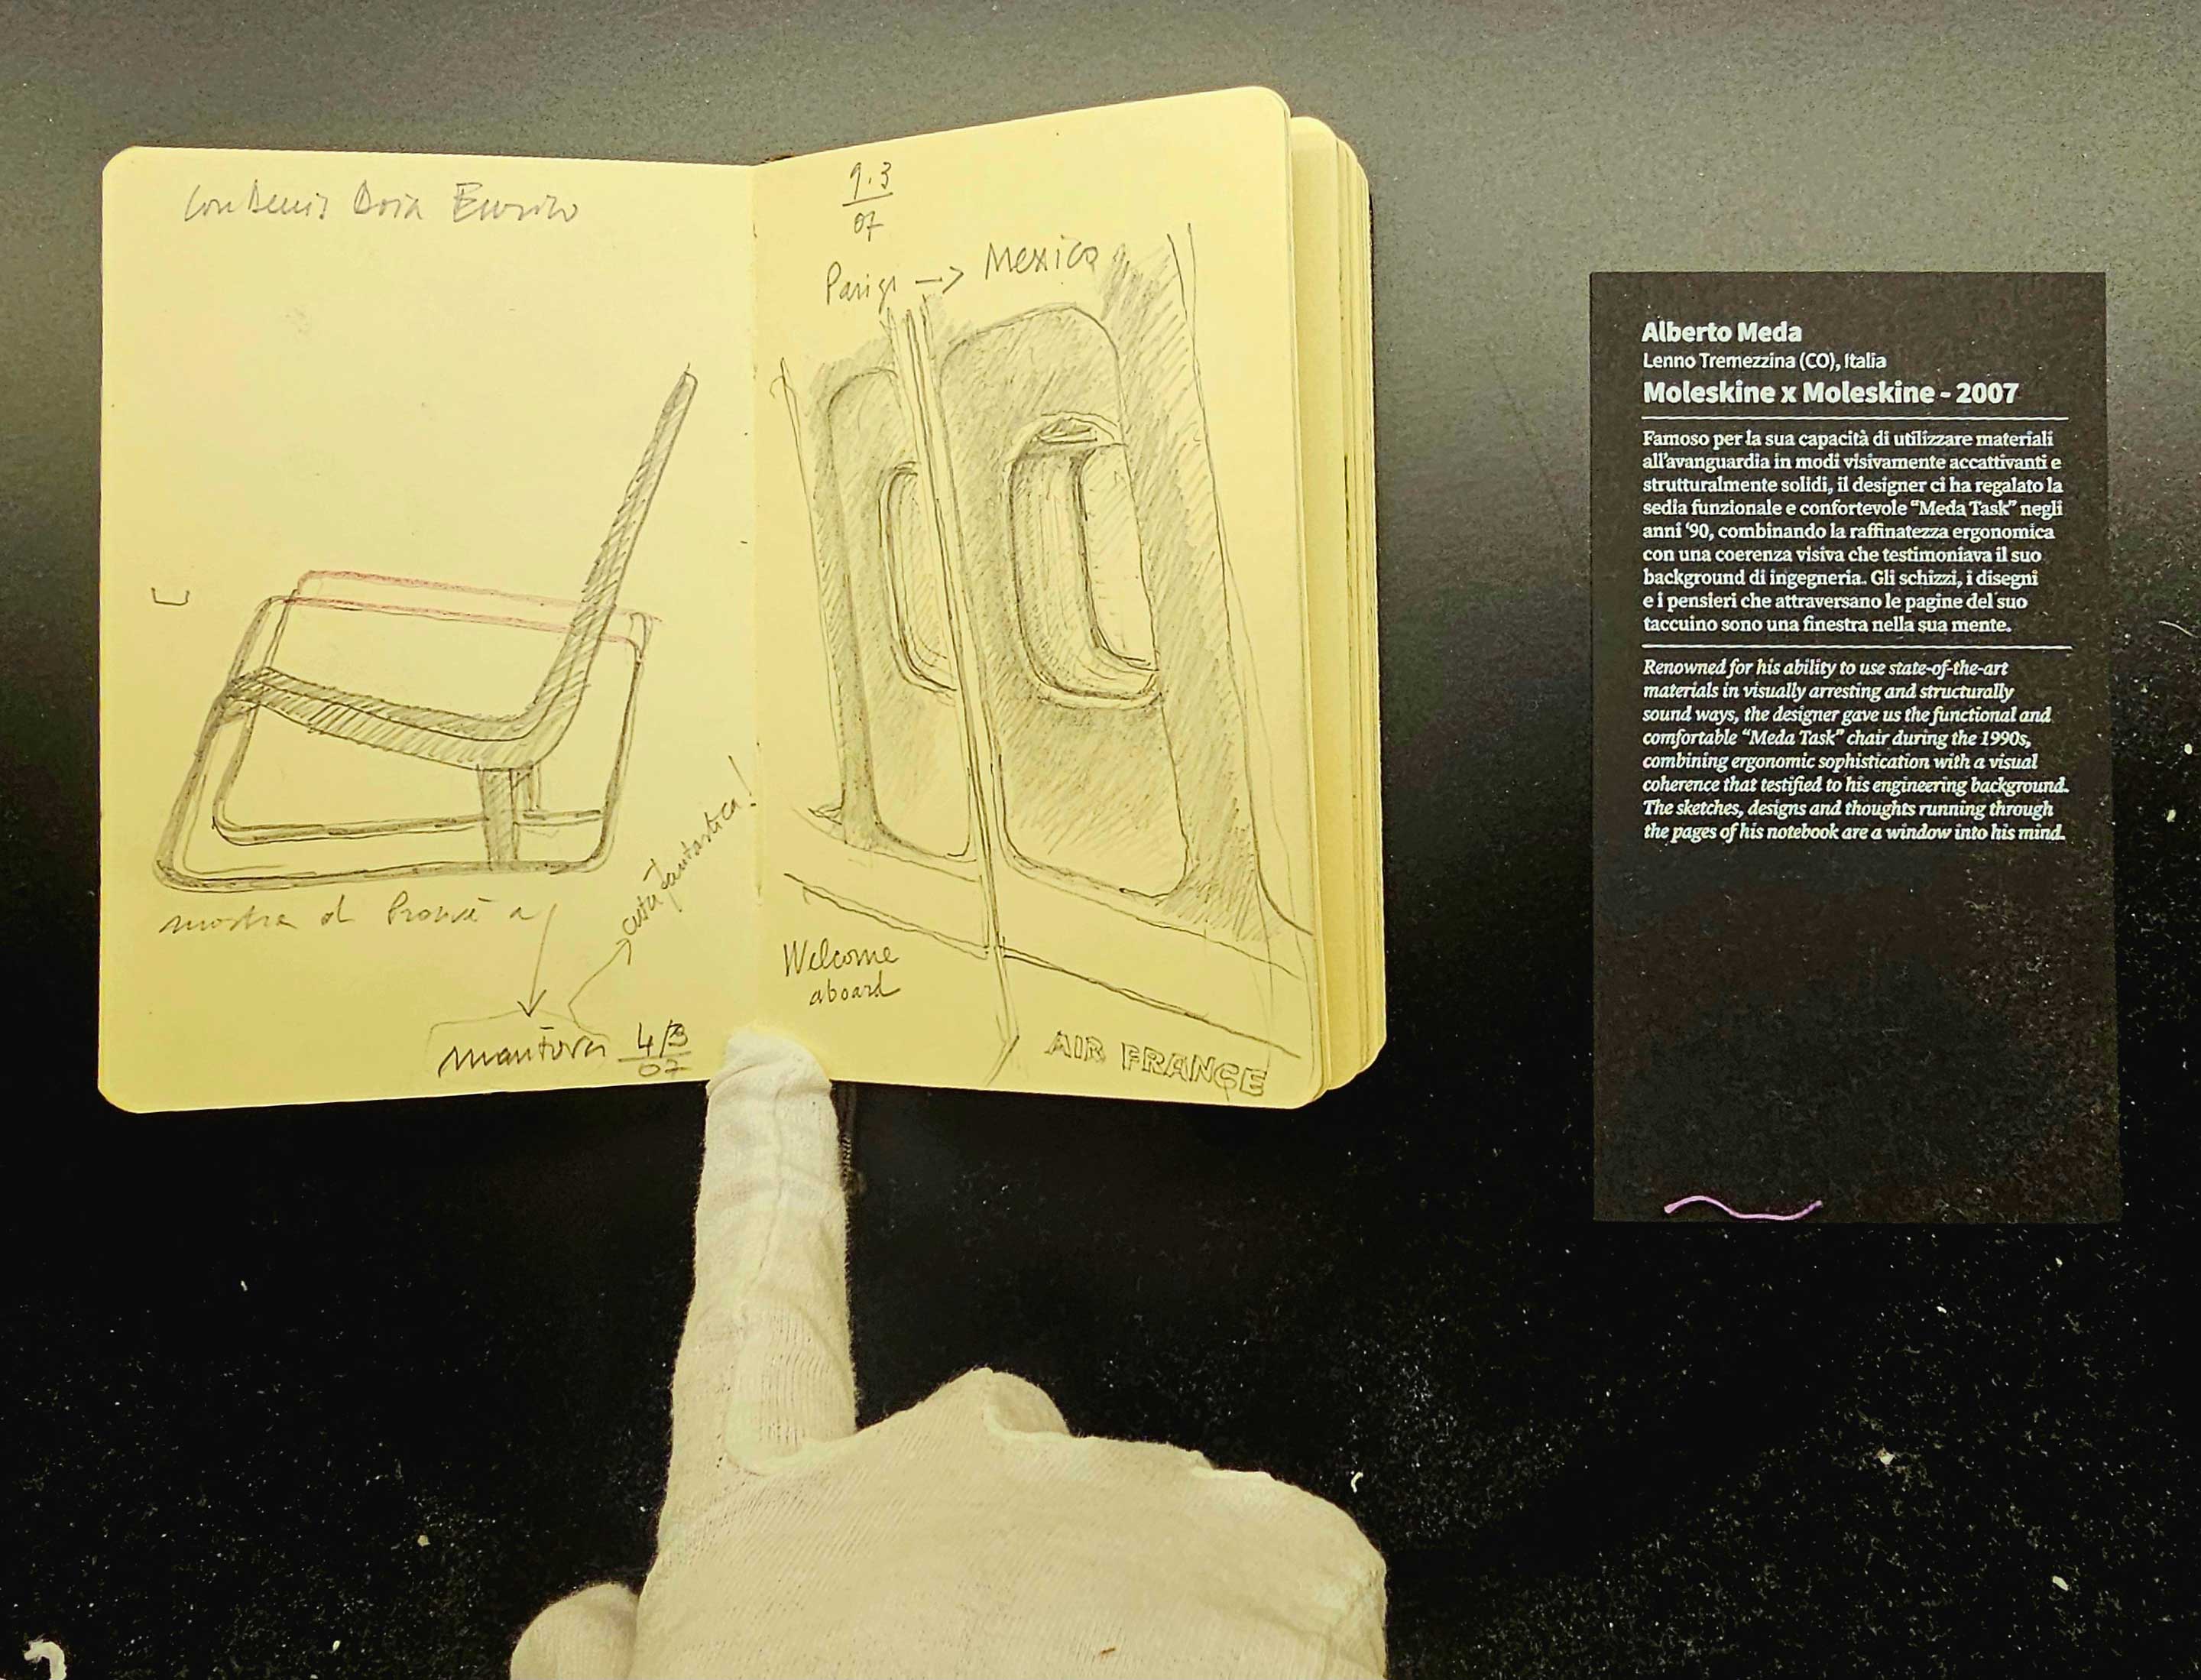 Con Denis Doia Enrico
mostra di Prouvé a
città fantastica!
Mantova 4/3
07
9.3
07
Parigi -> Mexico
Welcome
aboard
AIR FRANCE
Alberto Meda
Lenno Tremezzina (CO), Italia
Moleskine x Moleskine - 2007
Famoso per la sua capacità di utilizzare materiali
all'avanguardia in modi visivamente accattivanti e
strutturalmente solidi, il designer ci ha regalato la
sedia funzionale e confortevole “Meda Task” negli
anni ‘90, combinando la raffinatezza ergonomica
con una coerenza visiva che testimoniava il suo
background di ingegneria. Gli schizzi, i disegni
e i pensieri che attraversano le pagine del suo
taccuino sono una finestra nella sua mente.
Renowned for his ability to use state-of-the-art
materials in visually arresting and structurally
sound ways, the designer gave us the functional and
comfortable “Meda Task” chair during the 1990s,
combining ergonomic sophistication with a visual
coherence that testified to his engineering background.
The sketches, designs and thoughts running through
the pages of his notebook are a window into his mind.